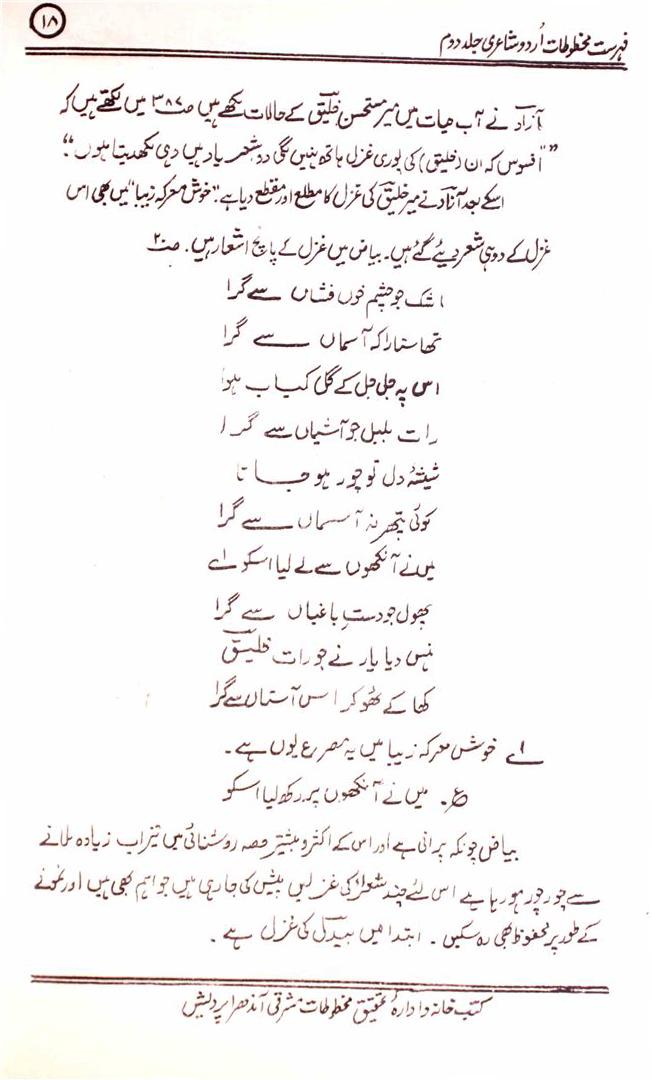 ۱۸
فہرست مخطوطات اُردو شاعری جلد دوم
آزاد نے آب حیات میں میر مستحسن خلیق کے حالات لکھے ہیں صـ ۳۸۷ میں لکھتے ہیں کہ
”افسوس کہ ان (خلیق) کی پوری غزل ہاتھ نہیں لگی دو شعر یاد ہیں وہی لکھ دیتا ہوں“۔
اسکے بعد آزاد نے میر خلیق کی غزل کا مطلع اور مقطع دیا ہے۔ ”خوش معرکہ زیبا“ میں بھی اس
غزل کے دو ہی شعر دیئے گئے ہیں۔ بیاض میں غزل کے پانچ اشعار ہیں۔ صـ ۲
اشک جو چشم خوں فشاں سے گرا
تھا ستارا کہ آسماں سے گرا
اس پہ جل جل کے گل کباب ہوا
رات بلبل جو آشیاں سے گرا
شیشۂ دل تو چور ہو جاتا
کوئی پتھر نہ آسماں سے گرا
میں نے آنکھوں سے لے لیا اسکو ۱ے
پھول جو دستِ باغباں سے گرا
ہنس دیا یار نے جو رات خلیق
کھا کے ٹھوکر اس آستاں سے گرا
۱ے خوش معرکہ زیبا میں یہ مصرع یوں ہے۔
ع۔ میں نے آنکھوں پر رکھ لیا اسکو
بیاض چونکہ پرانی ہے اور اس کے اکثر و بیشتر حصہ روشنائی میں تیزاب زیادہ ملانے
سے چور چور ہو رہا ہے اس لئے چند شعراؑ کی غزلیں پیش کی جا رہی ہیں جو اہم بھی ہیں اور نمونے
کے طور پر محفوظ بھی رہ سکیں۔ ابتدا میں بیدل کی غزل ہے۔
کتب خانہ و ادارۂ تحقیق مخطوطات مشرقی آندھرا پردیش